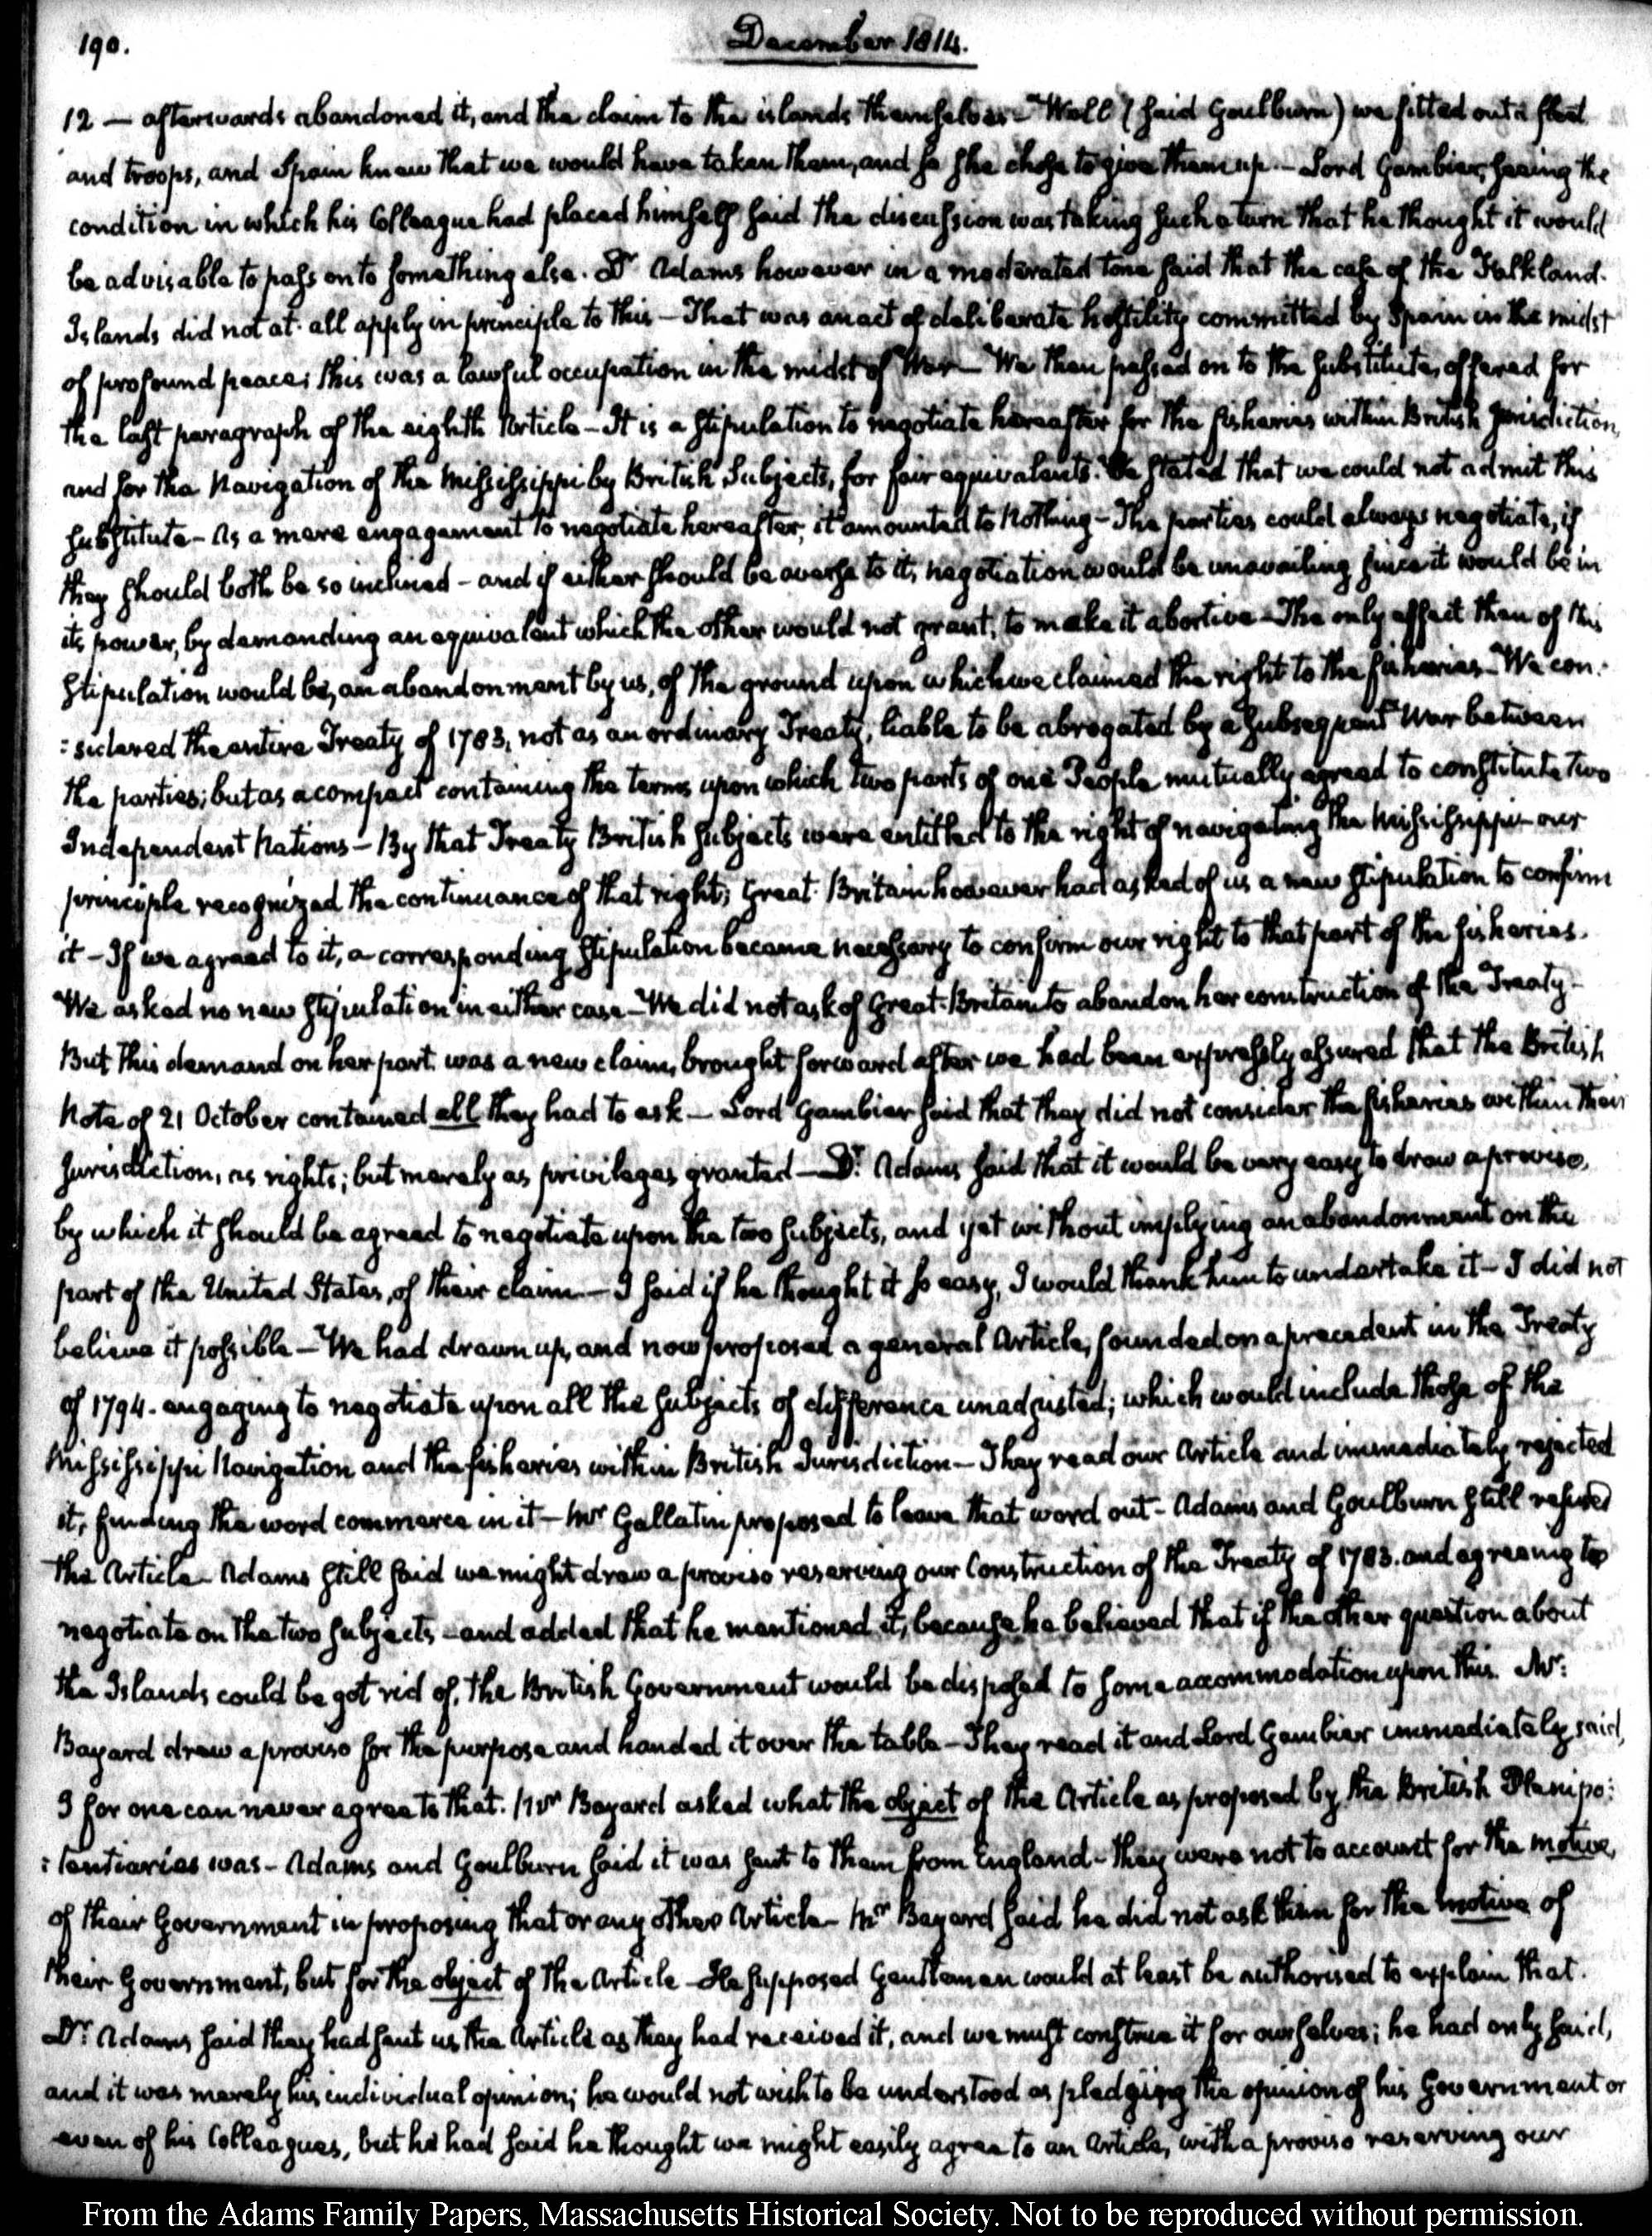 190.
December 1814.
12 — afterwards abandoned it, and the claim to the islands themselves — Well (said Goulburn) we fitted out a fleet
and troops, and Spain knew that we would have taken them, and so she chose to give them up — Lord Gambier, seeing the
condition in which his Colleague had placed himself said the discussion was taking such a turn that he thought it would
be advisable to pass on to something else. Dr. Adams however in a moderated tone said that the case of the Falkland-
Islands did not at all apply in principle to this — That was an act of deliberate hostility committed by Spain in the midst
of profound peace; this was a lawful occupation in the midst of War — We then passed on to the substitute, offered for
the last paragraph of the eighth Article — It is a stipulation to negotiate hereafter for the fisheries within British Jurisdiction,
and for the Navigation of the Mississippi by British Subjects, for fair equivalents. We stated that we could not admit this
substitute — As a mere engagement to negotiate hereafter, it amounted to Nothing — The parties could always negotiate, if
they should both be so inclined — and if either should be averse to it, negotiation would be unavailing since it would be in
its power, by demanding an equivalent which the other would not grant, to make it abortive — The only effect then of this
stipulation would be, an abandonment by us, of the ground upon which we claimed the right to the fisheries — We con:
:sidered the entire Treaty of 1783, not as an ordinary Treaty, liable to be abrogated by a subsequent War between
the parties; but as a compact containing the terms upon which two parts of one People mutually agreed to constitute two
Independent Nations — By that Treaty British subjects were entitled to the right of navigating the Mississippi — our
principle recognized the continuance of that right; Great-Britain however had asked of us a new stipulation to confirm
it — If we agreed to it, a corresponding stipulation became necessary to confirm our right to that part of the fisheries.
We asked no new stipulation in either case — We did not ask of Great-Britain to abandon her construction of the Treaty —
But this demand on her part was a new claim, brought forward after we had been expressly assured that the British
Note of 21 October contained all they had to ask — Lord Gambier said that they did not consider the fisheries within their
Jurisdiction, as rights; but merely as privileges granted — Dr. Adams said that it would be very easy to draw a proviso,
by which it should be agreed to negotiate upon the two subjects, and yet without implying an abandonment on the
part of the United States, of their claim — I said if he thought it so easy, I would thank him to undertake it — I did not
believe it possible — We had drawn up, and now proposed a general Article, founded on a precedent in the Treaty
of 1794. engaging to negotiate upon all the subjects of difference unadjusted; which would include those of the
Mississippi Navigation and the fisheries within British Jurisdiction — They read our Article and immediately rejected
it, finding the word commerce in it — Mr Gallatin proposed to leave that word out — Adams and Goulburn still refused
the Article — Adams still said we might draw a proviso reserving our Construction of the Treaty of 1783. and agreeing to
negotiate on the two subjects — and added that he mentioned it, because he believed that if the other question about
the Islands could be got rid of, the British Government would be disposed to some accommodation upon this. Mr:
Bayard drew a proviso for the purpose and handed it over the table — They read it and Lord Gambier immediately said,
I for one can never agree to that. Mr Bayard asked what the object of the Article as proposed by the British Plenipo:
:tentiaries was — Adams and Goulburn said it was sent to them from England — they were not to account for the motive,
of their Government in proposing that or any other Article — Mr Bayard said he did not ask them for the motive of
their Government, but for the object of the Article — He supposed Gentlemen would at least be authorised to explain that.
Dr. Adams said they had sent us the Article as they had received it, and we must construe it for ourselves; he had only said,
and it was merely his individual opinion; he would not wish to be understood as pledging the opinion of his Government or
even of his Colleagues, but he had said he thought we might easily agree to an Article, with a proviso reserving our
From the Adams Family Papers, Massachusetts Historical Society. Not to be reproduced without permission.